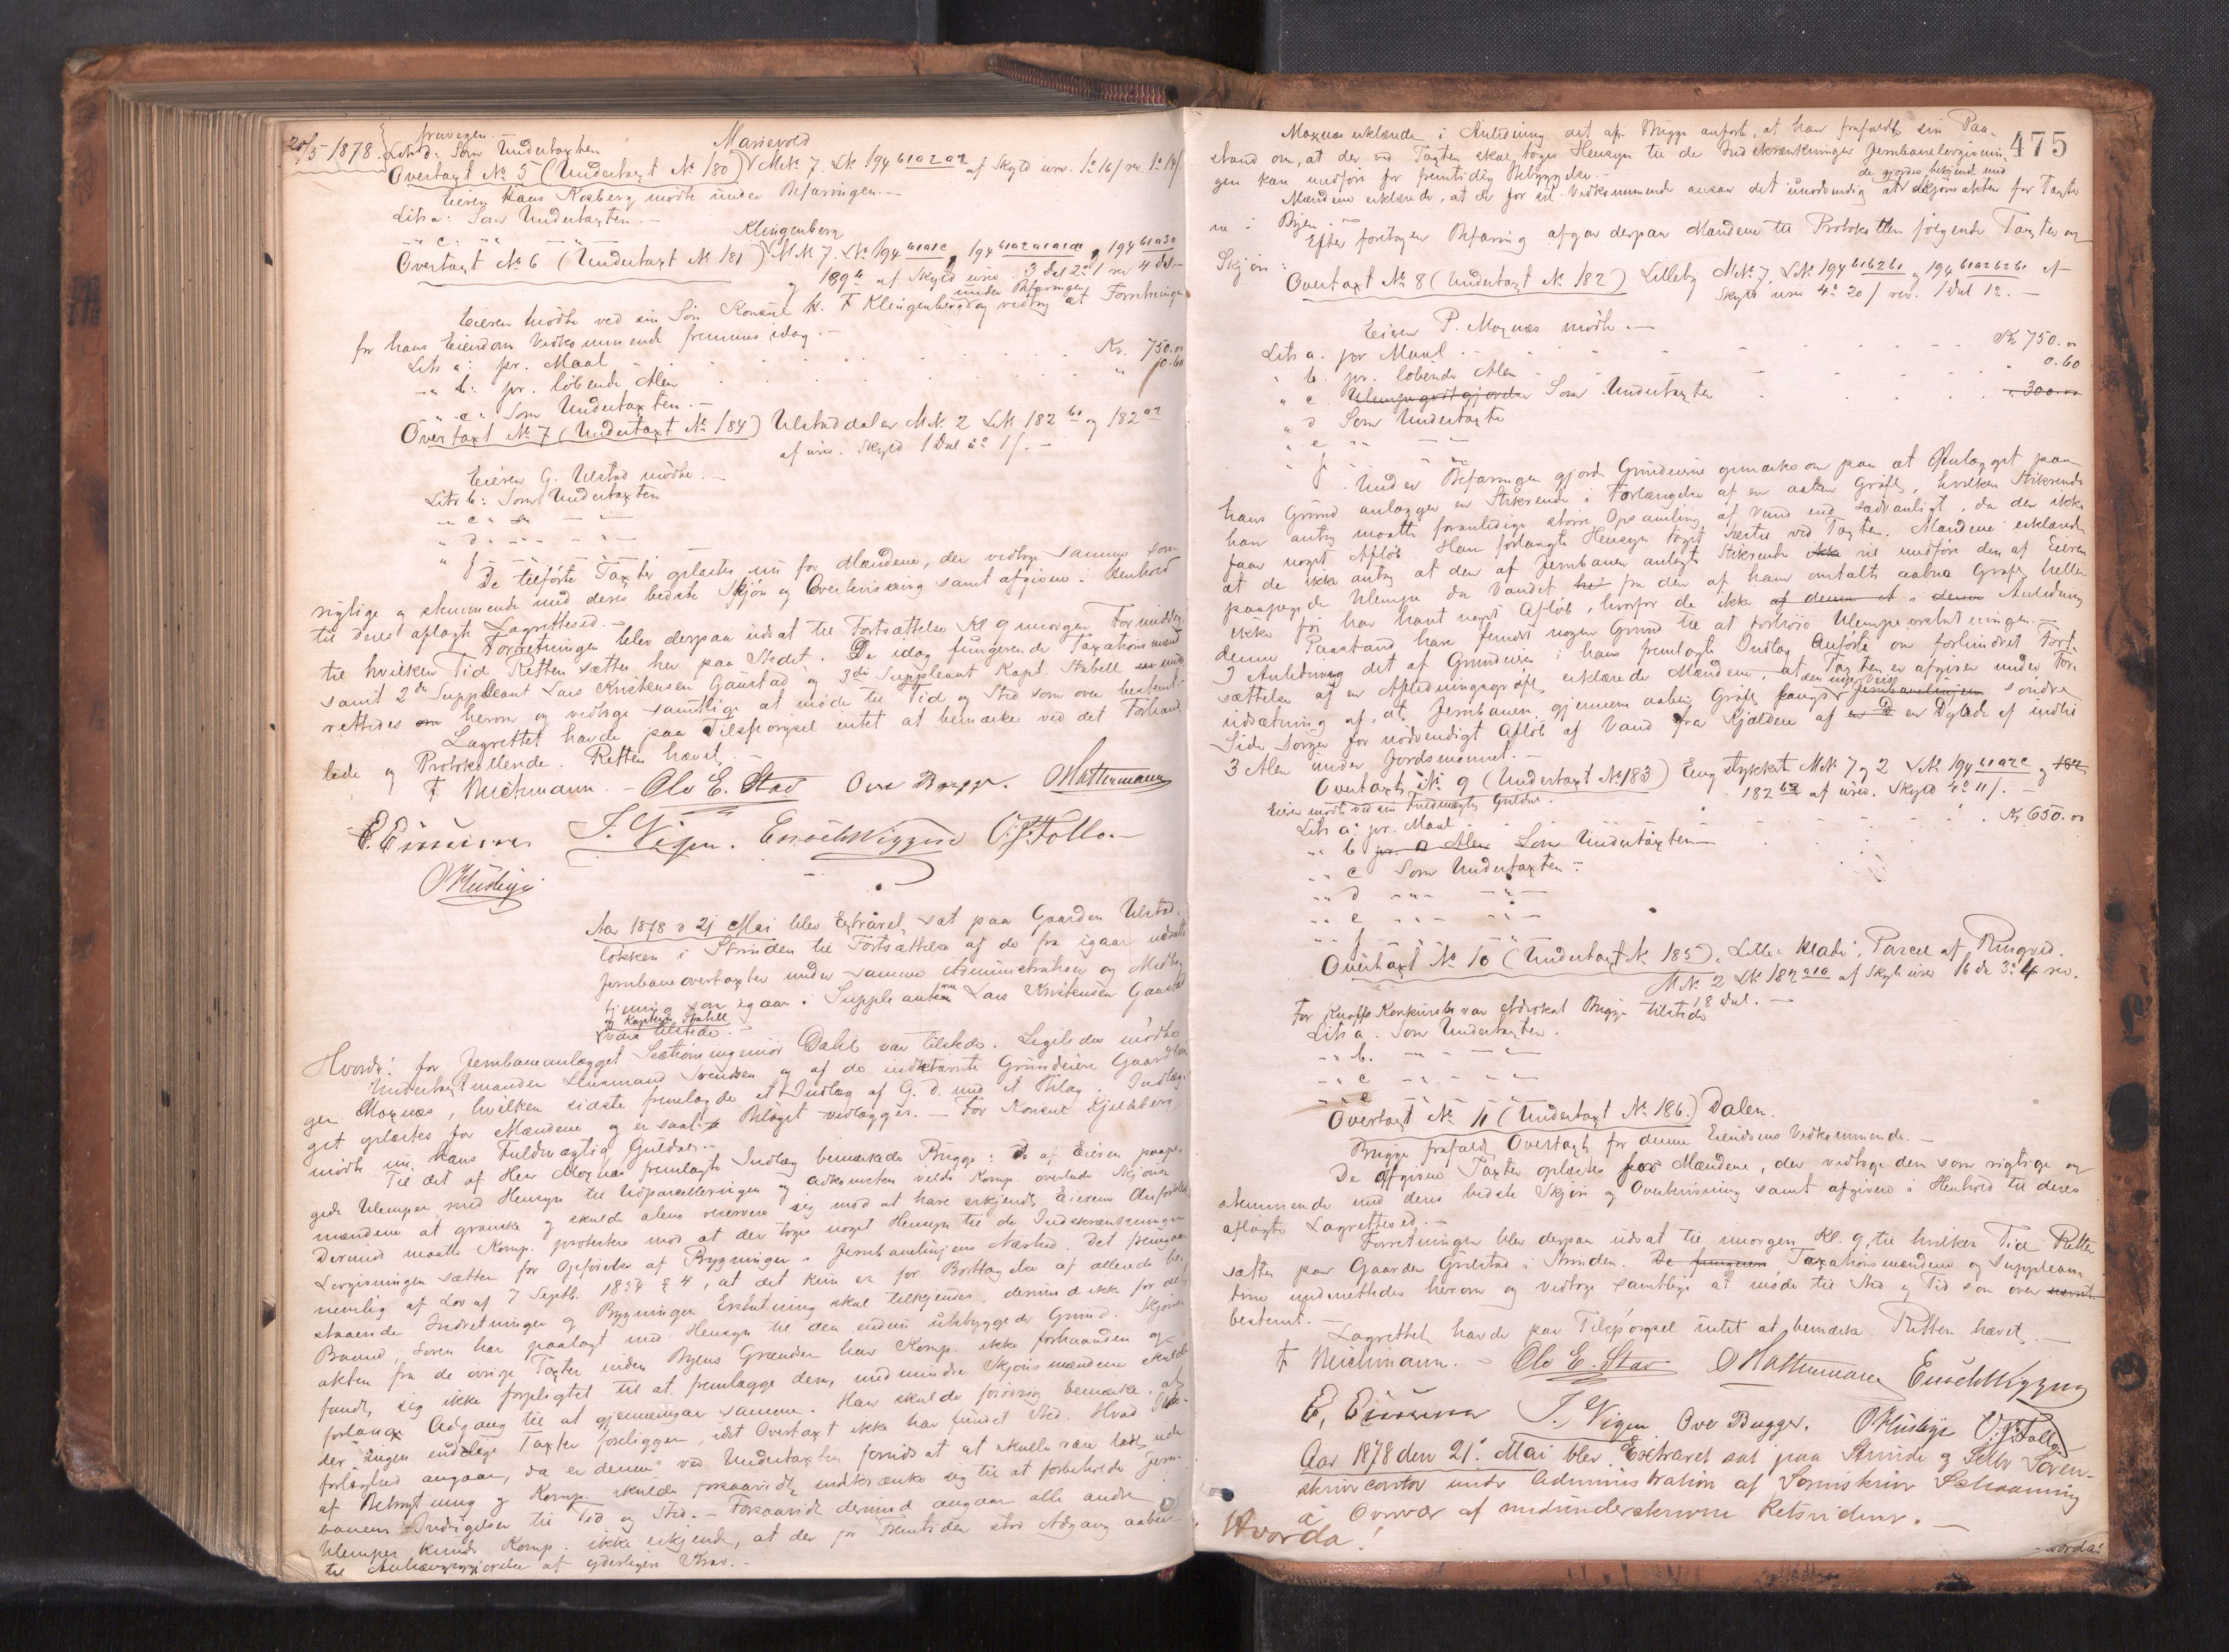 20/5 1878.
fravegen.
Litr d: Som Undertaxten
Marievold
Overtaxt No 5 (Undertaxt No 180) M.No 7. L.No 194 af Skyld urev.
Eieren Hans Rosberg mødte under Befaringen.
Litr a: Som Undertaxten.
" c: " "
Klingenberg
Overtaxt No 6 (Undertaxt No 181) M.No 7. L.No 194 b1a1c, 194 , 194 b1a30
og 189 b af Skyld urev. 3 Dal. 2 1 rev 4 Dal.
under Befaringen
Eieren mødte ved sin Søn Konsul H. F Klingenberg og vedtog at Forretningen
for hans Eiendoms Vedkommende fremmes idag.
Litr a: pr. Maal Kr. 750.00
" b: pr. løbende Alen " 0.60
" c: Som Undertaxten.
Overtaxt No 7 (Undertaxt No 184) Ulstaddalen M.No 2 L.No 182 b1 og 182 a2
af urev. Skyld 1 Dal 1/.
Eieren G. Ulstad mødte.
Litr b: Som Undertaxten
" c " "
" d " "
" f " "
De tilførte Taxter oplæstes nu for Mændene, der vedtoge samme som
rigtige og stemmende med deres bedste Skjøn og Overbevisning samt afgivne i Henhold
til deres aflagte Lagrettesed.
Forretningen blev derpaa udsat til Fortsættelse Kl 9 morgen Formiddag
til hvilken Tid Retten sættes her paa Stedet. De idag fungerende Taxationsmænd
samt 2den Suppleant Lars Kristensen Gaustad og 3die Suppleant Kapt. Stabell under
rettedes om herom og vedtoge samtlige at møde til Tid og Sted som over bestemt.
Lagrettet havde paa Tilspørgsel intet at bemærke ved det Forhand
lede og Protokollerede. Retten hævet.
F Richmann. Ole E. Stav Ove Bugge. O Hattermann
E. Einum J. Vigen. Enoch Wiggen O. J. Tollo
O Husbye
Aar 1878 d 21 Mai blev Extraret sat paa Gaarden Ulstad
løkken i Strinden til Fortsættelse af de fra igaar udsatte
Jernbaneovertaxter under samme Administration og Medbe
tjening som igaar. Suppleanterne Lars Kristensen Gaustad
og Kaptein Stabell
vare tilstede.
Hvorda! for Jernbaneanlægget Sectionsingeniør Dahl var tilstede. Ligeledes mødte
Undertaxtmanden Lensmand Svendsen og af de indvarslede Grundeiere Gaardbru
ger Moxnæs, hvilken sidste fremlagde et Indlæg af G. D. med et Bilag. Indlæg
get oplæstes for Mændene og er saalt Bilaget vedlægges. – For Konsul Kjeldsberg
mødte nu hans Fuldmægtig Guldas.
Til det af Herr Moxnæs fremlagte Indlæg bemærkede Bugge: De af Eieren paape
gede Ulemper med Hensyn til Udparcelleringen og Adkomsten vilde Komp. overlade Skjøns
mændene at granske og skulde alene reservere sig mod at have erkjendt Eierens Anførsler
Derimod maatte Komp. protestere mod at der toges noget Hensyn til de Indskrænkninger
Lovgivningen sætter for Opførelse af Bygninger i Jernbanelinjens Nærhed. Det fremgaar
nemlig af Lov af 7 Septb. 1854 § 4, at det kun er for Borttagelse af allerede be
staaende Indretninger og Bygninger Erstatning skal tilkjendes, derimod ikke for det
Baand, Loven har paalagt med Hensyn til den endnu ubebyggede Grund. Skjøns
akten fra de øvrige Taxter inden Byens Grændser har Komp. ikke forhaanden og
fandt sig ikke forpligtet til at fremlægge dem, medmindre Skjønsmændene skulde
forlange Adgang til at gjennemgaa samme. Han skulde forøvrig bemærke, at
der ingen endelige Taxter foreligger, idet Overtaxt ikke har fundet Sted. Hvad
angaar, da er denne ved Undertaxten forudsat at skulle være ladt ude
af Betragtning og Komp. skulde forsaavidt indskrænke sig til at forbeholde Jern
banens Indsigelser til Tid og Sted. – Forsaavidt derimod angaar alle andre
Ulemper kunde Komp. ikke erkjende, at der for Fremtiden stod Adgang aaben
til Anhængiggjørelse af yderligere Krav.
475
Moxnæs erklærede i Anledning det af Hr Bugge anførte, at han frafaldt sin Paa-
stand om, at der ved Taxten skal tages Hensyn til de Indskrænkninger Jernbanelovgivnin
gen kan medføre for fremtidig Bebyggelse.
de gjøres bekjendt med
Mændene erklærede, at de for sit Vedkommende ansaa det unødvendig at Skjønsakten for Taxte
ne i Byen.
Efter foretagen Befaring afgav derpaa Mændene til Protokollen følgende Taxter og
Skjøn:
Overtaxt No 8 (Undertaxt No 182) Lilleby M.No 7, L.No 194 b1b2b1 og 194 b1a2b2b1 af
Skyld urev 20/ rev. 1 Dal 1.
Eieren P. Moxnæs mødte.
Litr a. pr Maal Kr 750.00
" b pr. løbende Alen " 0.60
" c Ulempegodtgjørelse Som Undertaxten 300.00
" d Som Undertaxte
" e " "
" f " "
Under Befaringen gjorde Grundeieren opmærksom paa at Anlægget paa
hans Grund anlægger en Stikrende i Forlængelse af en aaben Grøft, hvilken Stikrende
han antog maatte foranledige større Opsamling af Vand end sædvanligt, da den ikke
faar noget Afløb. Han forlangte Hensyn taget hertil ved Taxten. Mændene erklærede
at de ikke antog at den af Jernbanen anlagte Stikrende ikke vil medføre den af Eieren
paapegede Ulempe da Vandet fra den af ham omtalte aabne Grøft heller
ikke før har havt noget Afløb, hvorfor de ikke af denne i denne Anledning
denne Paastand have fundet nogen Grund til at forhøie Ulempeerstatningen.
I Anledning det af Grundeieren i hans fremlagte Indlæg Anførte om forhindret Fort-
sættelse af en Afledningsgrøft erklærede Mændene, at Taxten er afgiven under For
udsætning af, at Jernbanen gjennem aaben Grøft langs Jernbanelinjens søndre
Side sørger for nødvendigt Afløb af Vand fra Kjælderen af en Dybde af indtil
3 Alen under Jordsmonnet.
Overtaxt No 9 (Undertaxt No 183) Engstykket M.No 7 og 2 L.No 194 b1a2c og 182
182 b2 af urev. Skyld 11/.
Eieren mødte ved sin Fuldmægtig Guldas.
Litr a: pr. Maal Kr 650.00
" b pr. Alen Som Undertaxten
" c Som Undertaxten.
" d " "
" e " "
" f " "
Overtaxt No 10 (Undertaxt No 185), Lille Kladi, Parcel af Ringved.
M.No 2 L.No 182 a10 af Skyld urev 16 Da 3 4 rev.
18 Dal.
For Knoffs Konkursbo var Advokat Bugge tilstede
Litr a. Som Undertaxten.
" b. " "
" c " "
" e " "
Overtaxt No 11 (Undertaxt No 186.) Dalen.
Bugge frafaldt Overtaxt for denne Eiendoms Vedkommende.
De afgivne Taxter oplæstes for Mændene, der vedtoge dem som rigtige og
stemmende med deres bedste Skjøn og Overbevisning samt afgivne i Henhold til deres
aflagte Lagrettesed.
Forretningen blev derpaa udsat til imorgen Kl. 9, til hvilken Tid Retten
sættes paa Gaarden Gulstad i Strinden. De fungeren Taxationsmændene og Supplean
terne underrettedes herom og vedtoge samtlige at møde til Sted og Tid som over nævnt
bestemt.
Lagrettet havde paa Tilspørgsel intet at bemærke. Retten hævet.
F Richmann. Ole E. Stav O Hattermann Enoch Wiggen
E. Einum J. Vigen Ove Bugge. O Husbye O. J. Tollo
Aar 1878 den 21' Mai blev Extraret sat paa Strinde og Selbo Soren-
skrivercontor under Administration af Sorenskriver Schanning
i Overvær af medunderskrevne Retsvidner.
Hvorda!
-vorda: